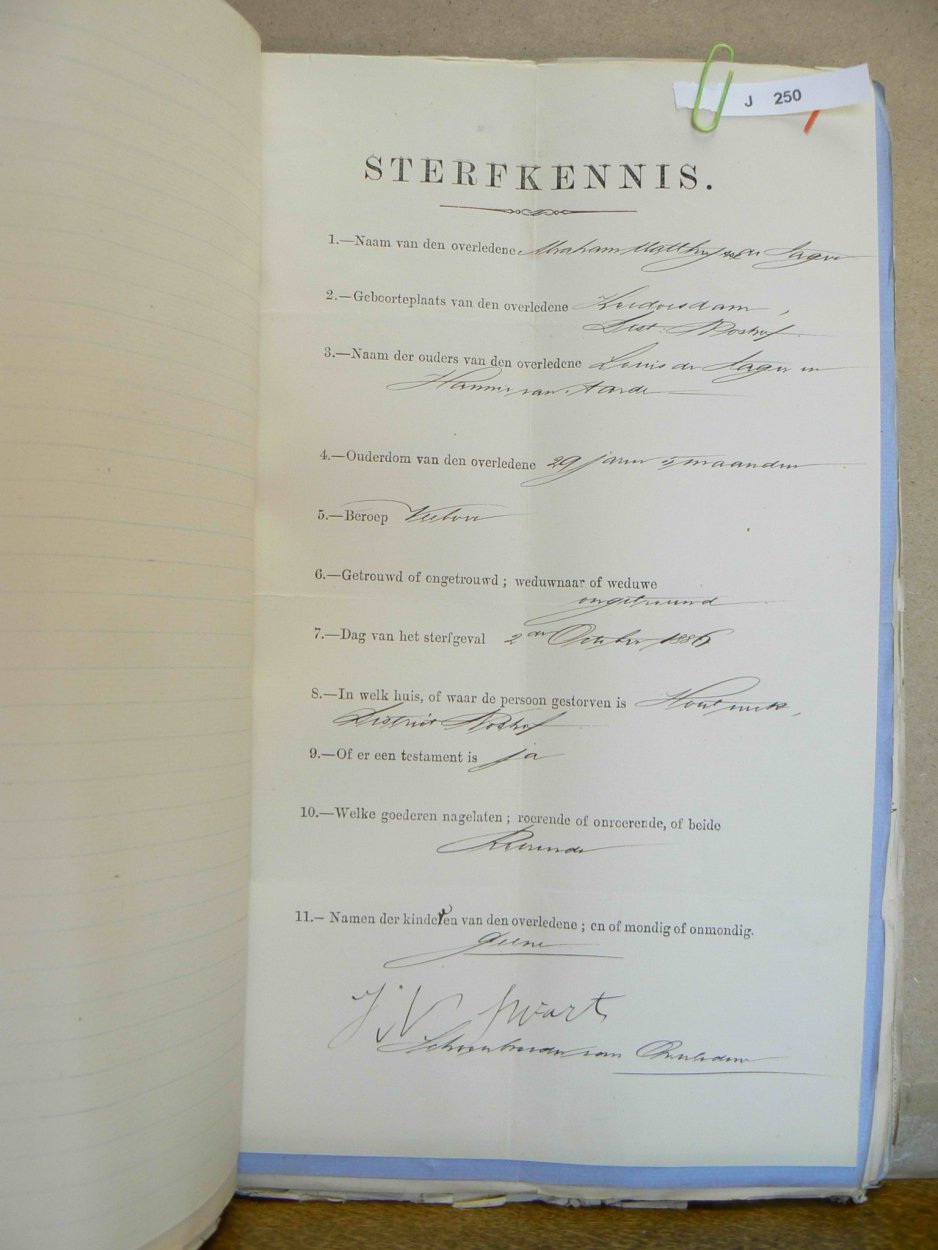 J 250
STERFKENNIS.
1.—Naam van den overledene Abraham Matthys de Jager
2.—Geboorteplaats van den overledene
Dist. Boshof
3.—Naam der ouders van den overledene Louis de Jager en
Hannie van Aarde
4.—Ouderdom van den overledene 29 jaren 5 maanden
5.—Beroep Veeboer
6.—Getrouwd of ongetrouwd; weduwnaar of weduwe
ongetrouwd
7.—Dag van het sterfgeval 2de October 1886
8.—In welk huis, of waar de persoon gestorven is
District Boshof
9.—Of er een testament is ja
10.—Welke goederen nagelaten; roerende of onroerende, of beide
Roerende
11.—Namen der kinderen van den overledene; en of mondig of onmondig.
geene
J N Swart
van Overledene